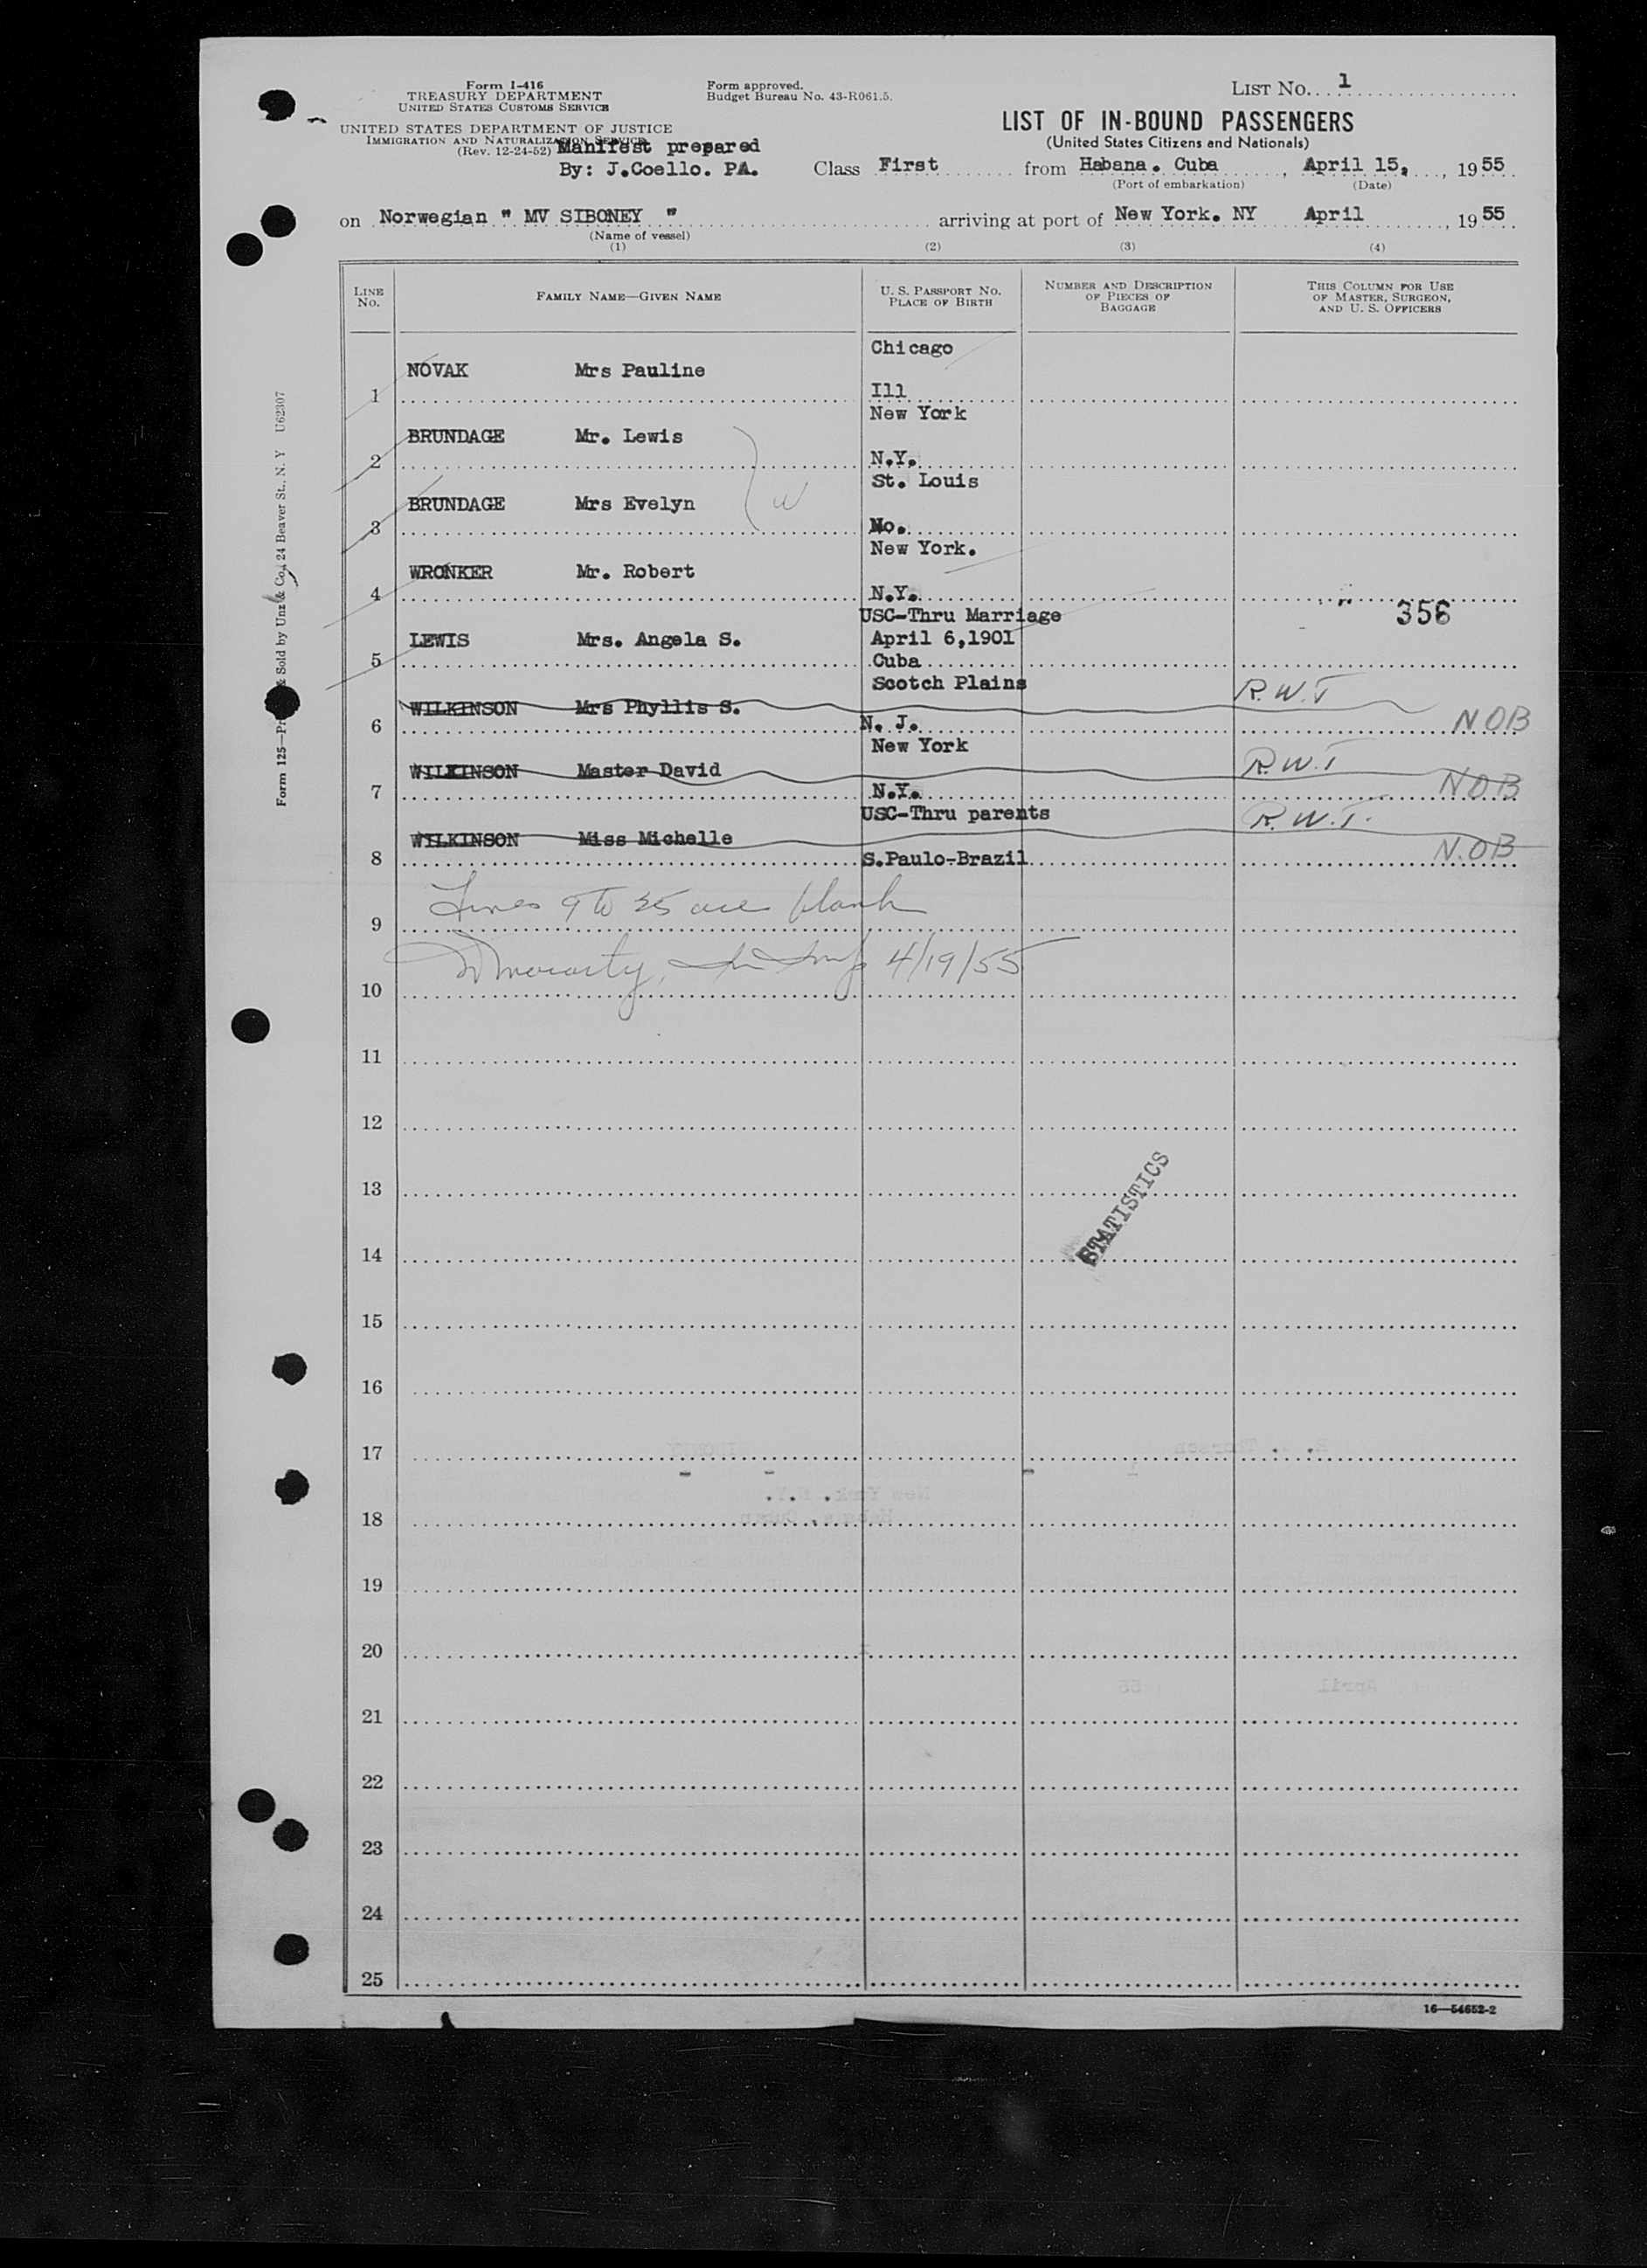 Form I-416
TREASURY DEPARTMENT
UNITED STATES CUSTOMS SERVICE
Form approved.
Budget Bureau No. 43-R061.5.
LIST No. 1
UNITED STATES DEPARTMENT OF JUSTICE
IMMIGRATION AND NATURALIZATION SERVICE
(Rev. 12-24-52)
Manifest prepared
By: J.Coello. PA.
LIST OF IN-BOUND PASSENGERS
(United States Citizens and Nationals)
Class First from Habana. Cuba, April 15, 1955
(Port of embarkation) (Date)
on Norwegian " MV SIBONEY " arriving at port of New York. NY April, 1955
(Name of vessel)
(1) (2) (3) (4)
LINE No. FAMILY NAME—GIVEN NAME U. S. PASSPORT NO. PLACE OF BIRTH NUMBER AND DESCRIPTION OF PIECES OF BAGGAGE THIS COLUMN FOR USE OF MASTER, SURGEON, AND U. S. OFFICERS
1 NOVAK Mrs Pauline Chicago Ill
2 BRUNDAGE Mr. Lewis New York N.Y.
3 BRUNDAGE Mrs Evelyn St. Louis Mo.
W
4 WRONKER Mr. Robert New York. N.Y.
356
5 LEWIS Mrs. Angela S. USC-Thru Marriage April 6,1901 Cuba
6 WILKINSON Mrs Phyllis S. Scotch Plains N. J. R.W.T NOB
7 WILKINSON Master David New York N.Y. R.W.T NOB
8 WILKINSON Miss Michelle USC-Thru parents S.Paulo-Brazil R.W.T. N.OB
9 Lines 9 to 25 are blank
10 4/19/55
11
12
13
STATISTICS
14
15
16
17
18
19
20
21
22
23
24
25
16—54652-2
Form 125— Sold by Unz & Co., 24 Beaver St., N. Y U62307